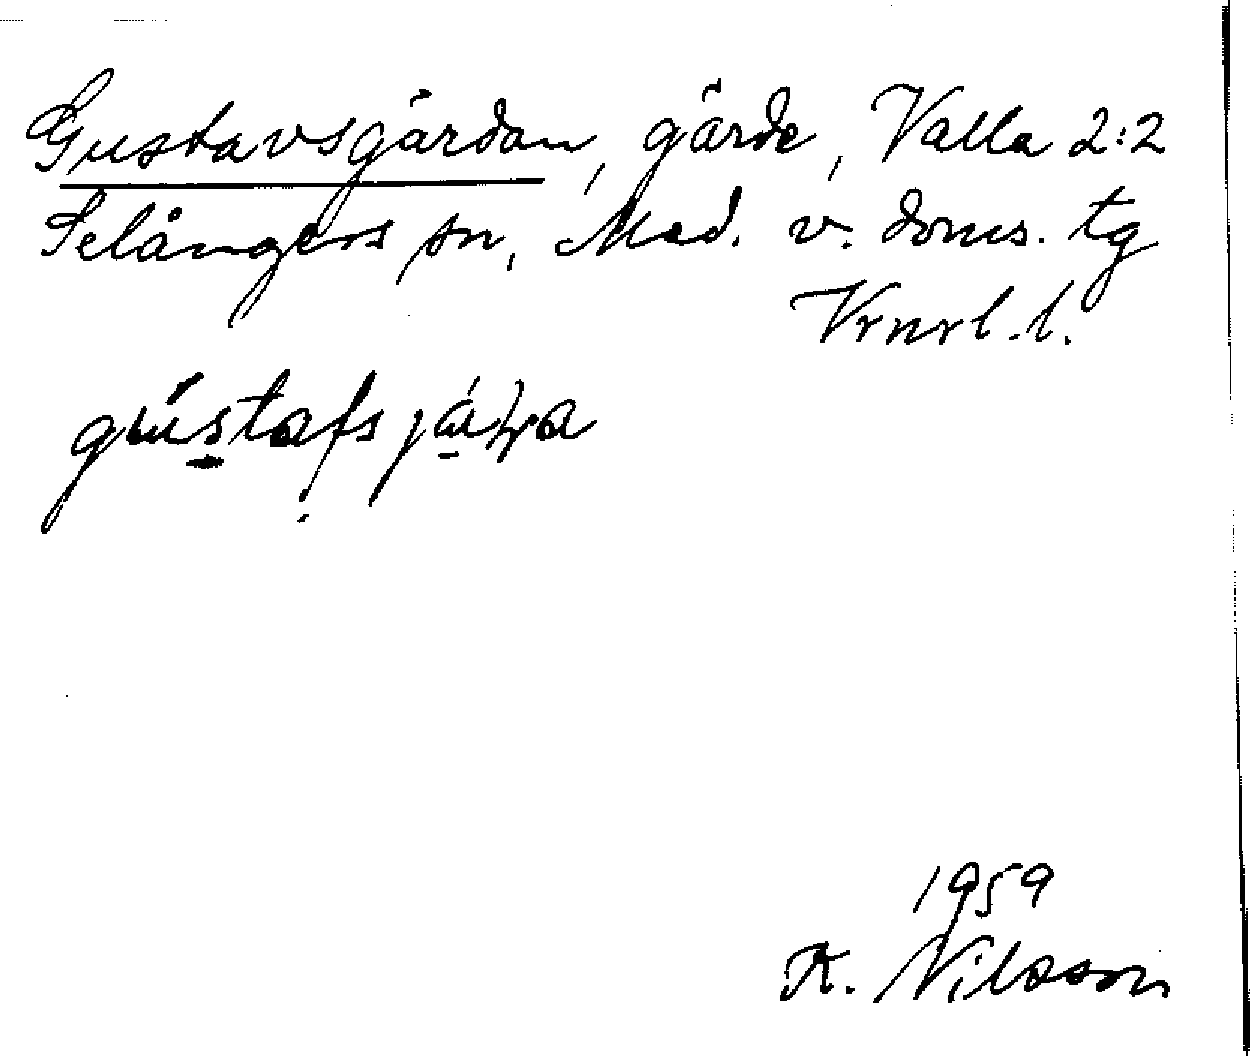 Gustavsgärdan, gärde, Valla 2:2
Selångers sn, Med. v. doms. tg
Vrnrl. l.
gústafsjáḷa
1959
K. Nilsson